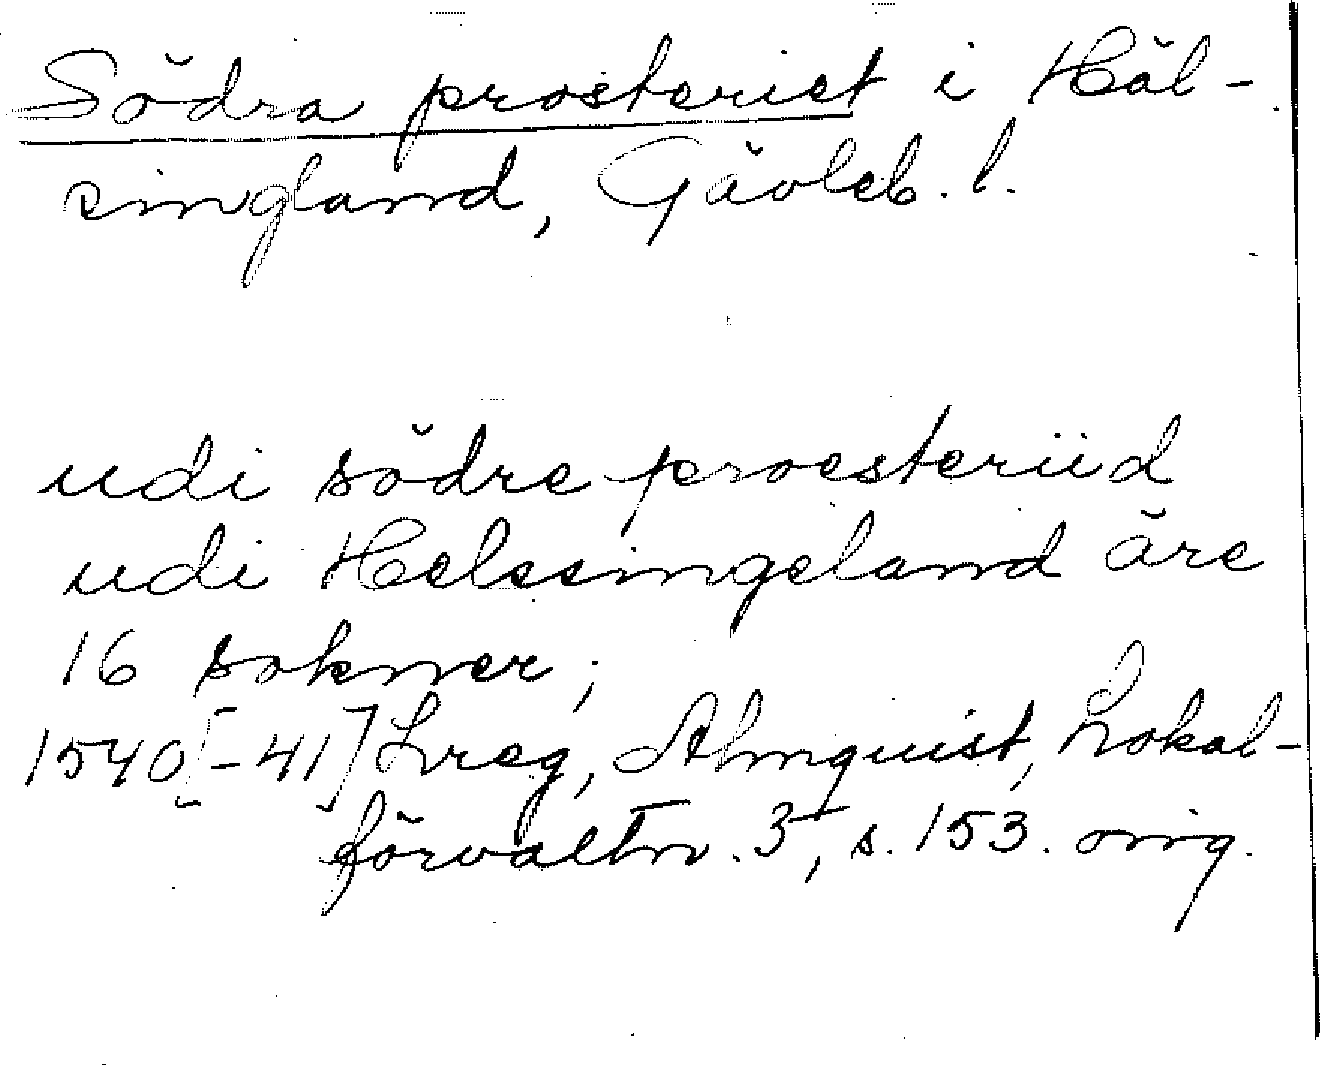 Södra prosteriet i Häl-
singland, Gävleb. l.
udi södre proesteriid
udi Helssingeland äre
16 sokner;
1540[-41] Lreg, Almquist, Lokal-
förvaltn. 3, s. 153. orig.